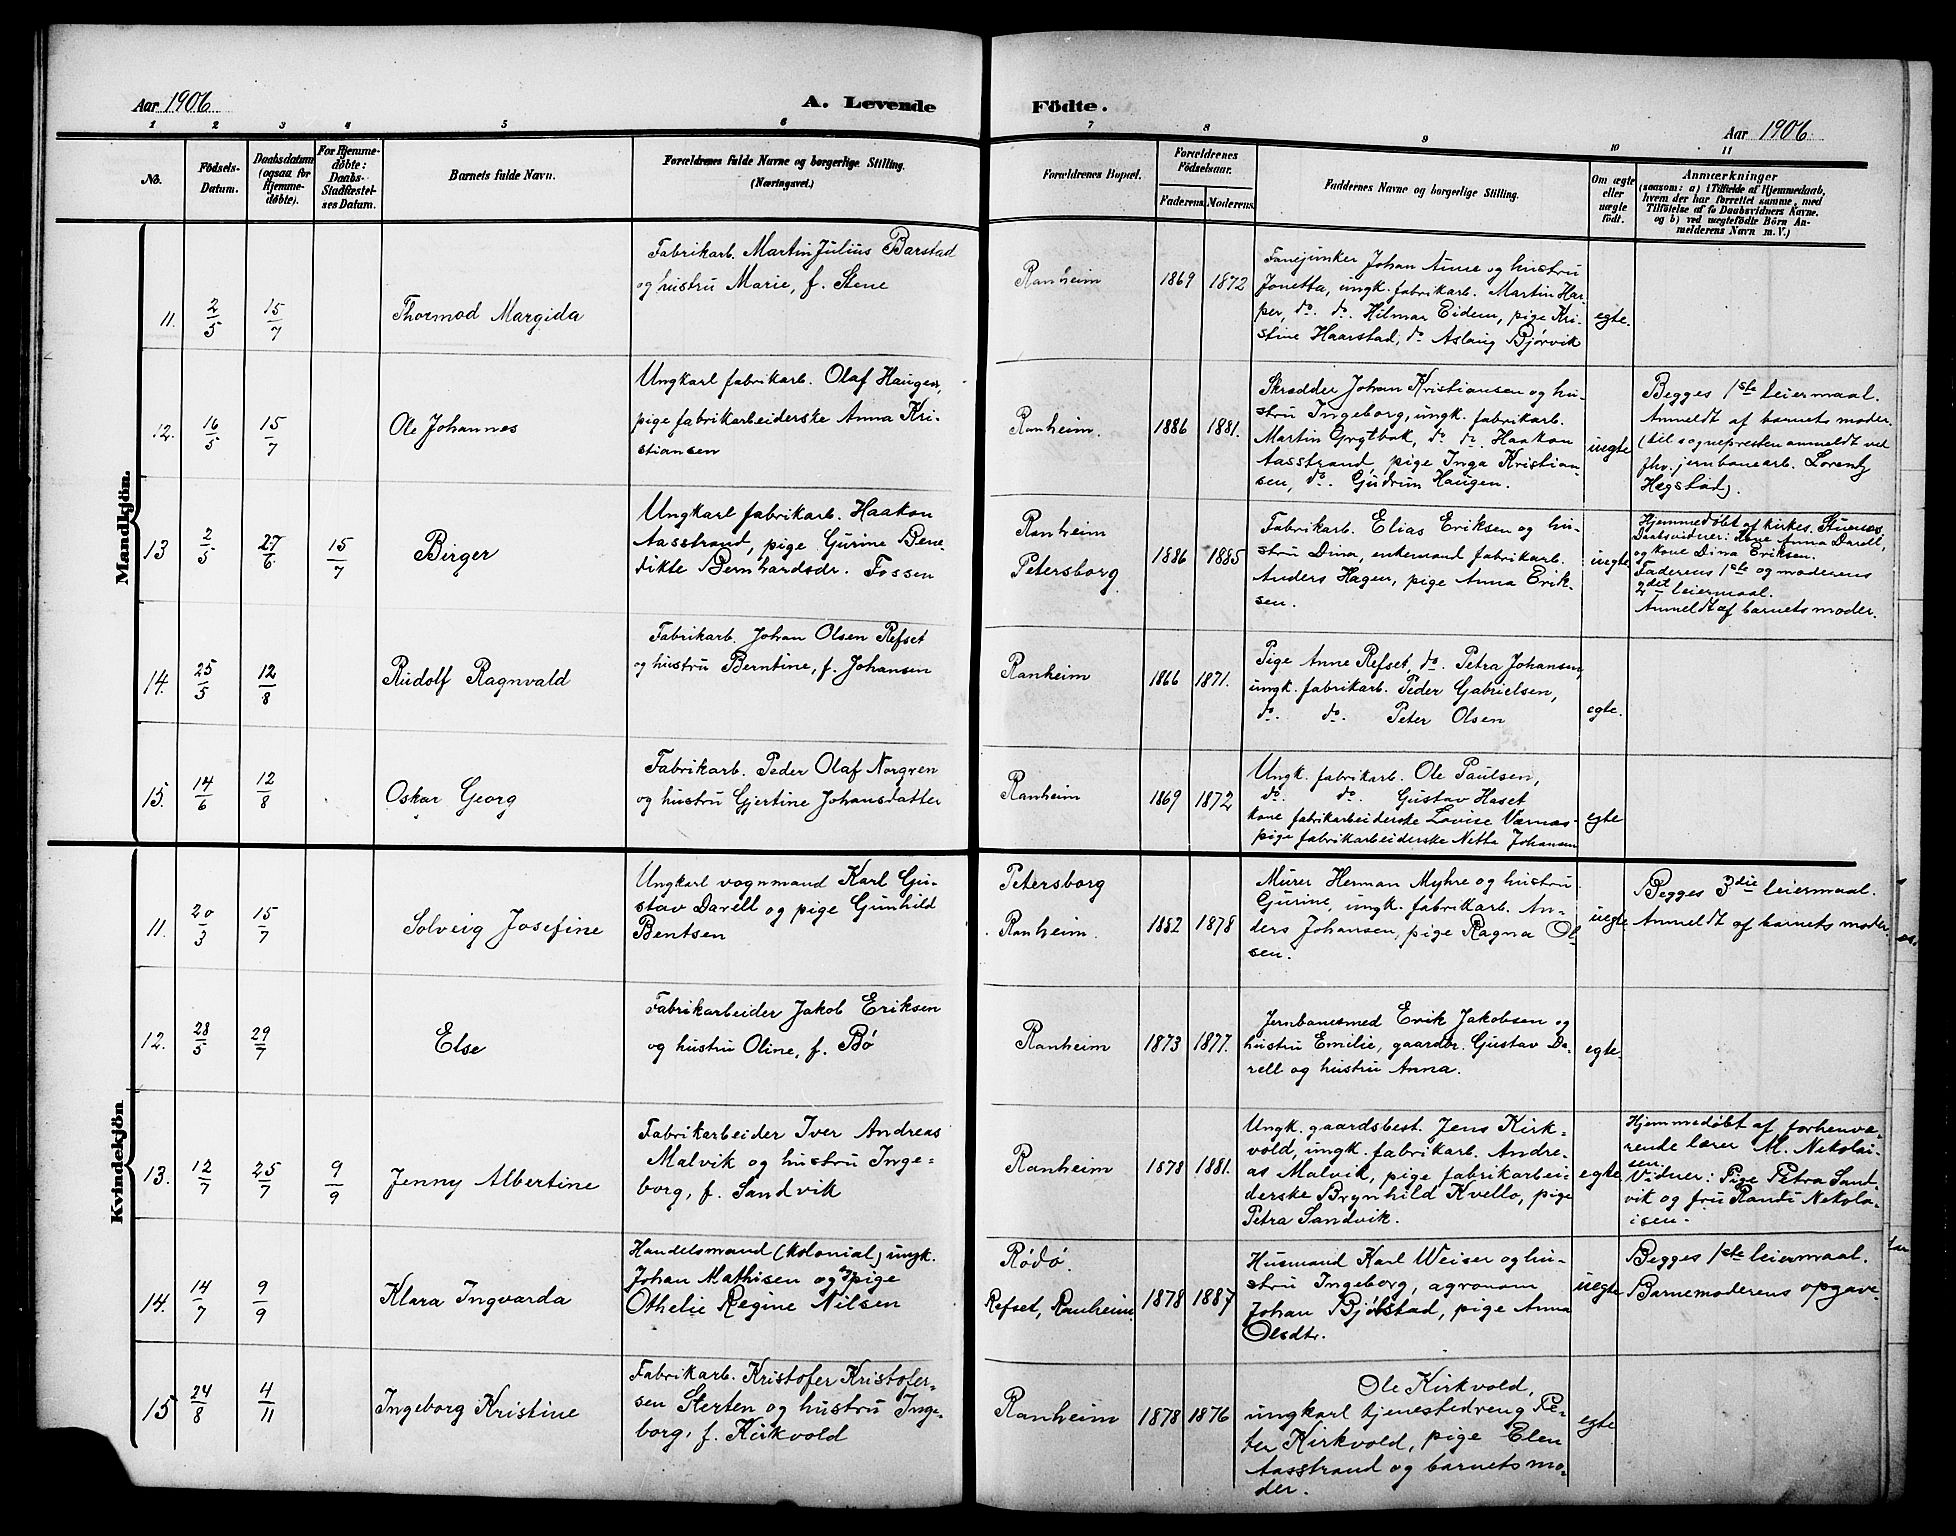 Aar 1906
A. Levende
Födte.
Aar 1906
1
2
3
4
5
6
7
8
9
10
11
No.
Födsels-
Datum.
Daabsdatum
(ogsaa for
Hjemme-
døbte).
For Hjemme-
døbte:
Daabs-
Stadfæstel-
ses Datum.
Barnets fulde Navn.
Forældrenes fulde Navne og borgerlige Stilling.
(Næringsvei.)
Forældrenes Bopæl.
Forældrenes
Födselsaar.
Faderens
Moderens
Faddernes Navne og borgerlige Stilling.
Om ægte
eller
uægte
födt.
Anmærkninger
(saasom: a) i Tilfælde af Hjemmedaab,
hvem der har forrettet samme, med
Tilföielse af to Daabsvidners Navne,
og b) ved uægtefödte Börn An-
melderens Navn m. V.)
Mandkjön.
11.
2/5
15/7
Thormod Margida
Fabrikarb. Martin Julius Barstad
og hustru Marie, f. Stene
Ranheim
1869
1872
Fanejunker Johan Aune og hustru
Jonetta, ungk. fabrikarb. Martin Har-
per, do. do. Hilmar Eidem, pige Kri-
stine Haarstad, do Aslaug Bjørvik
egte.
12.
16/5
15/7
Ole Johannes
Ungkarl fabrikarb. Olaf Haugen,
pige fabrikarbeiderske Anna Kri-
stiansen
Ranheim.
1886
1881.
Skrædder Johan Kristiansen og hu-
stru Ingeborg, ungk. fabrikarb.
Martin Grytbak, do do. Haakon
Aasstrand, pige Inga Kristian-
sen, do. Gudrun Haugen.
uegte
Begges 1ste leiermaal.
Anmeldt af barnets moder.
(til sognepresten anmeldt ved
fhv. jernbanearb. Lorentz
Hegstad).
13
2/5
27/6.
15/7
Birger
Ungkarl fabrikarb. Haakon
Aasstrand, pige Gurine Bene-
dikte Bernhardsdr. Fossen
Ranheim
Petersborg
1886
1885
Fabrikarb. Elias Eriksen og hu-
stru Dina, enkemand fabrikarb.
Anders Hagen, pige Anna Erik-
sen.
uegte
Hjemmedøbt af kirkes.
Daabsvidner: Kone Anna Darell,
og kone Dina Eriksen.
Faderens 1ste og moderens
2det leiermaal.
Anmeldt af barnets moder.
14.
25/5
12/8
Rudolf Ragnvald
Fabrikarb. Johan Olsen Refset
og hustru Berntine, f. Johansen
Ranheim
1866
1871.
Pige Anne Refset, do. Petra Johansen,
ungk. fabrikarb. Peder Gabrielsen,
do. do. Peter Olsen
egte.
15.
14/6
12/8
Oskar Georg
Fabrikarb. Peder Olaf Norgren
og hustru Gjertine Johansdatter
Ranheim
1869
1872
Ungk. fabrikarb. Ole Paulsen,
do. do. Gustav Haset
kone fabrikarbeiderske Lovise Værnæs
pige fabrikarbeiderske Netta Johansen
egte
Kvindekjön
11.
20/3
15/7
Solveig Josefine
Ungkarl vognmand Karl Gu-
stav Darell og pige Gunhild
Bentsen
Petersborg
Ranheim.
1882
1878
Murer Herman Myhre og hustru
Gurine, ungk. fabrikarb. An-
ders Johansen, pige Ragna Ol-
sen.
uegte
Begges 3die leiermaal.
Anmeldt af barnets moder.
12.
28/5
29/7
Else
Fabrikarbeider Jakob Eriksen
og hustru Oline, f. Bø
Ranheim
1873
1877.
Jernbanesmed Erik Jakobsen og
hustru Emilie, gaardbr. Gustav Da-
rell og hustru Anna.
egte
13.
12/7
25/7
9/9
Jenny Albertine
Fabrikarbeider Iver Andreas
Malvik og hustru Inge-
borg, f. Sandvik
Ranheim
1878
1881.
Ungk. gaardsbest. Jens Kirk-
vold, ungk. fabrikarb. Andre-
as Malvik, pige fabrikarbei-
derske Brynhild Kvello, pige
Petra Sandvik.
egte
Hjemmedøbt af forhenvæ-
rende lærer M. Nekolai-
sen.
Vidner: Pige Petra Sand
vik og fru Randi Nekola-
isen.
14.
14/7
9/9
Klara Ingvarda
Handelsmand (kolonial) ungk.
Johan Mathisen og pige
Othelie Regine Nilsen
Rødø.
Refset, Ranheim.
1878
1887
Husmand Karl Weiser og hu-
stru Ingeborg, agronom
Johan Bjølstad, pige Anna
Olsdtr.
uegte
Begges 1ste leiermaal.
Barnemoderens opgave.
15
24/8
4/11
Ingeborg Kristine
Fabrikarb. Kristofer Kristofer-
sen Sterten og hustru Inge-
borg, f. Kirkvold
Ranheim
1878
1876
Ole Kirkvold,
ungkarl tjenestedreng Pe-
ter Kirkvold, pige Elen
Aasstrand og barnets mo-
der.
egte